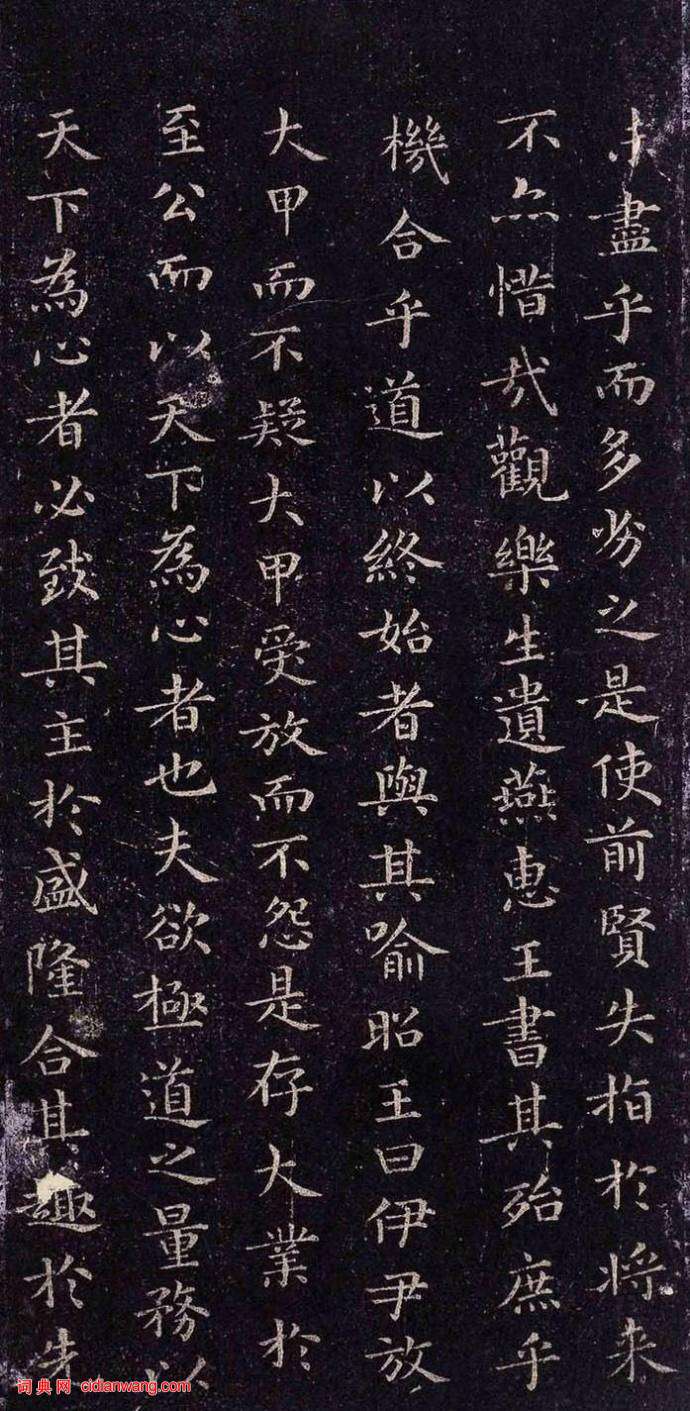 未盡乎而多劣之是使前賢失指於將来
不亦惜哉觀樂生遺燕惠王書其殆庶乎
機合乎道以終始者與其喻昭王曰伊尹放
大甲而不疑大甲受放而不怨是存大業於
至公而以天下為心者也夫欲極道之量務以
天下為心者必致其主於盛隆合其趣於先
词典网 cidianwang.com